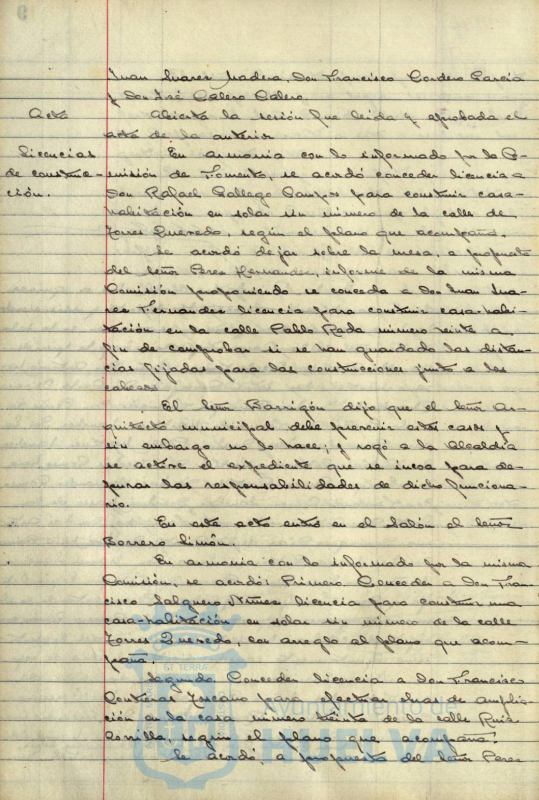 Juan Suarez Madera, Don Francisco Cordero Garcia
y Don José Calero Calero.
Acta
Abierta la sesión fue leida y aprobada el
acta de la anterior
Licencias
de construc-
ción.
En armonia con lo informado por la Co-
misión de Fomento, se acordó conceder licencia a
Don Rafael Gallego Campos para construir casa-
habitación en solar sin número de la calle de
Torres Quevedo, según el plano que acompaña.
Se acordó dejar sobre la mesa, a propuesta
del Señor Perez Hernandez, informe de la misma
Comisión proponiendo se conceda a Don Juan Sua-
rez Fernandez licencia para construir casa-habi-
tación en la calle Pablo Rada número veinte a
fin de comprobar si se han guardado las distan-
cias fijadas para las construcciones junto a los
cabezos
El Señor Barrigón dijo que el Señor Ar-
quitecto municipal debe prevenir estos casos y
sin embargo no lo hace; y rogó a la Alcaldía
se active el expediente que se incoa para de-
purar las responsabilidades de dicho funciona-
rio.
En este acto entró en el Salón el Señor
Borrero Limón.
En armonia con lo informado por la misma
Comisión, se acordó: Primero. Conceder a Don Fran-
cisco Salguero Núñez licencia para construir una
casa-habitación en solar sin número de la calle
Torres Quevedo, con arreglo al plano que acom-
paña.
Segundo. Conceder licencia a Don Francisco
Contreras Toscano para efectuar obras de amplia-
ción en la casa número treinta de la calle Ruiz
Zorrilla, según el plano que acompaña.
Se acordó, a propuesta del Señor Perez
Ayuntamiento de
HUELVA